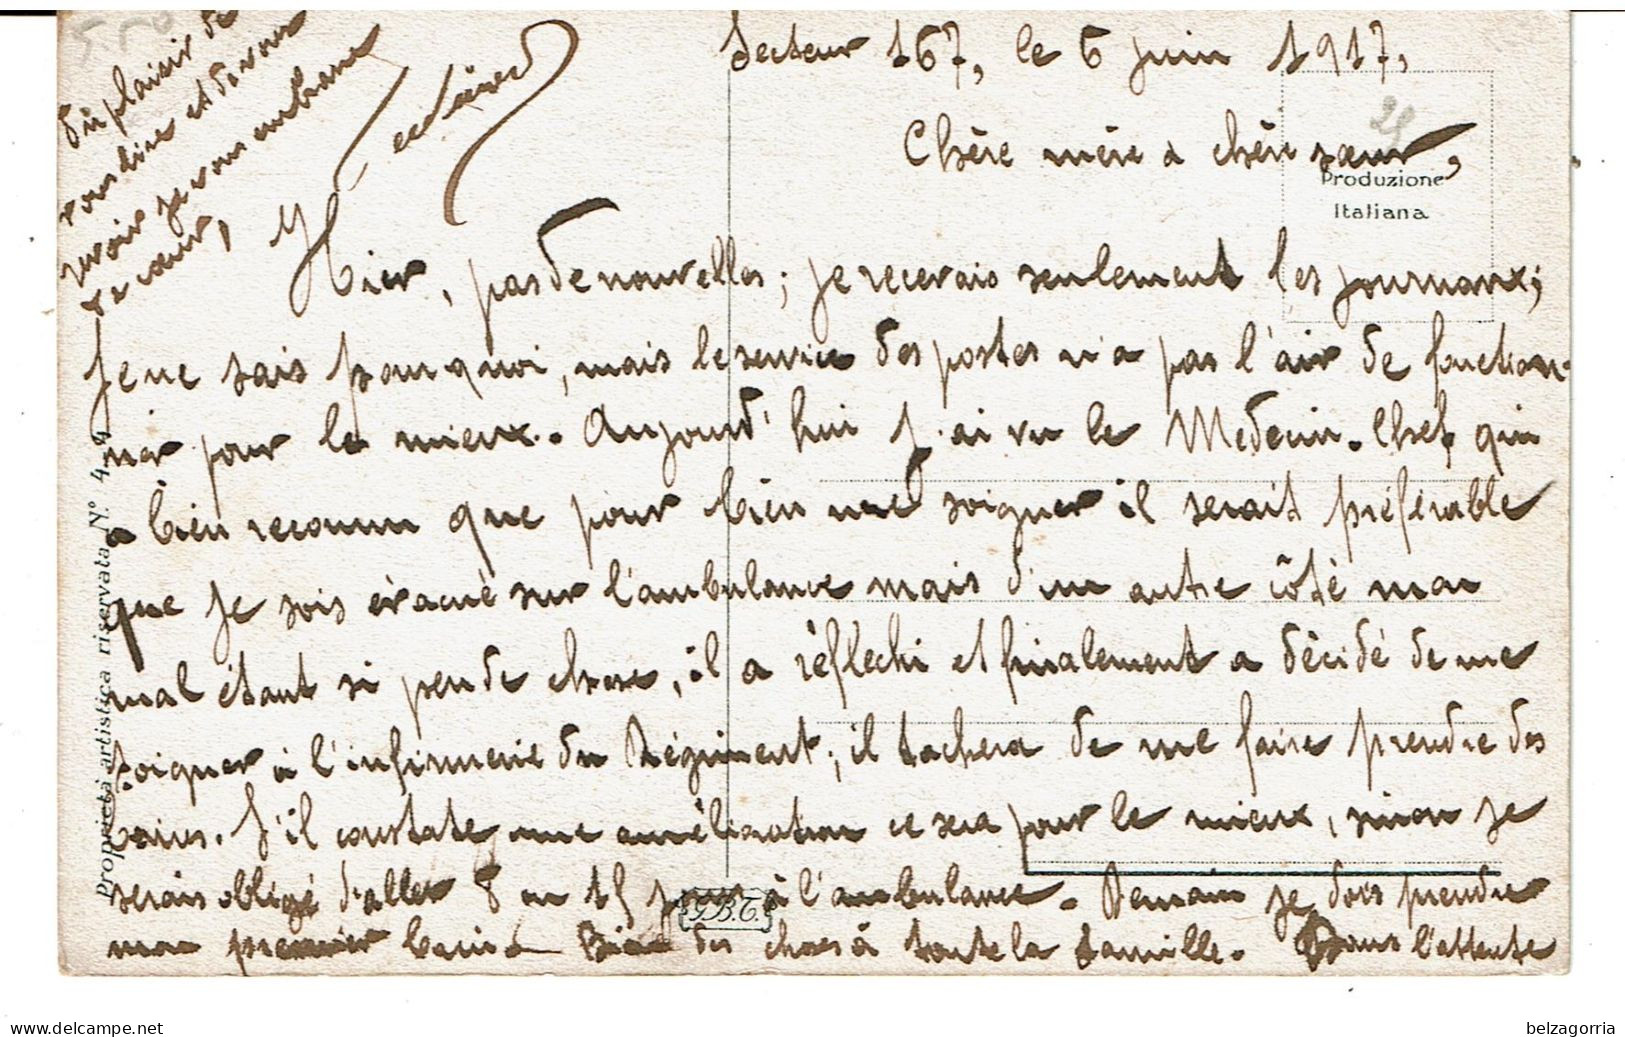 Secteur 167, le 6 juin 1917,
Chère mère & chère sœur,
Produzione
Italiana
Hier, pas de nouvelles; je recevais seulement les journaux;
Je ne sais pourquoi, mais le service des postes n'a pas l'air de fonction-
ner pour le mieux. Aujourd'hui j'ai vu le Médecin-Chef qui
a bien reconnu que pour bien me soigner il serait préférable
que je sois évacué sur l'ambulance mais d'un autre côté mon
mal étant si peu de chose, il a réfléchi et finalement a décidé de me
soigner à l'infirmerie du Régiment; il tachera de me faire prendre des
bains. S'il constate une amélioration ce sera pour le mieux, sinon je
serais obligé d'aller 8 ou 15 jours à l'ambulance. Demain je dois prendre
mon premier bain. Bien des choses à toute la famille. Dans l'attente
du plaisir de
vous lire et de vous
revoir je vous embrasse
de cœur,
Proprietà artistica riservata N° 44
G.B.T.
5.50
25
delcampe.net
belzagorria